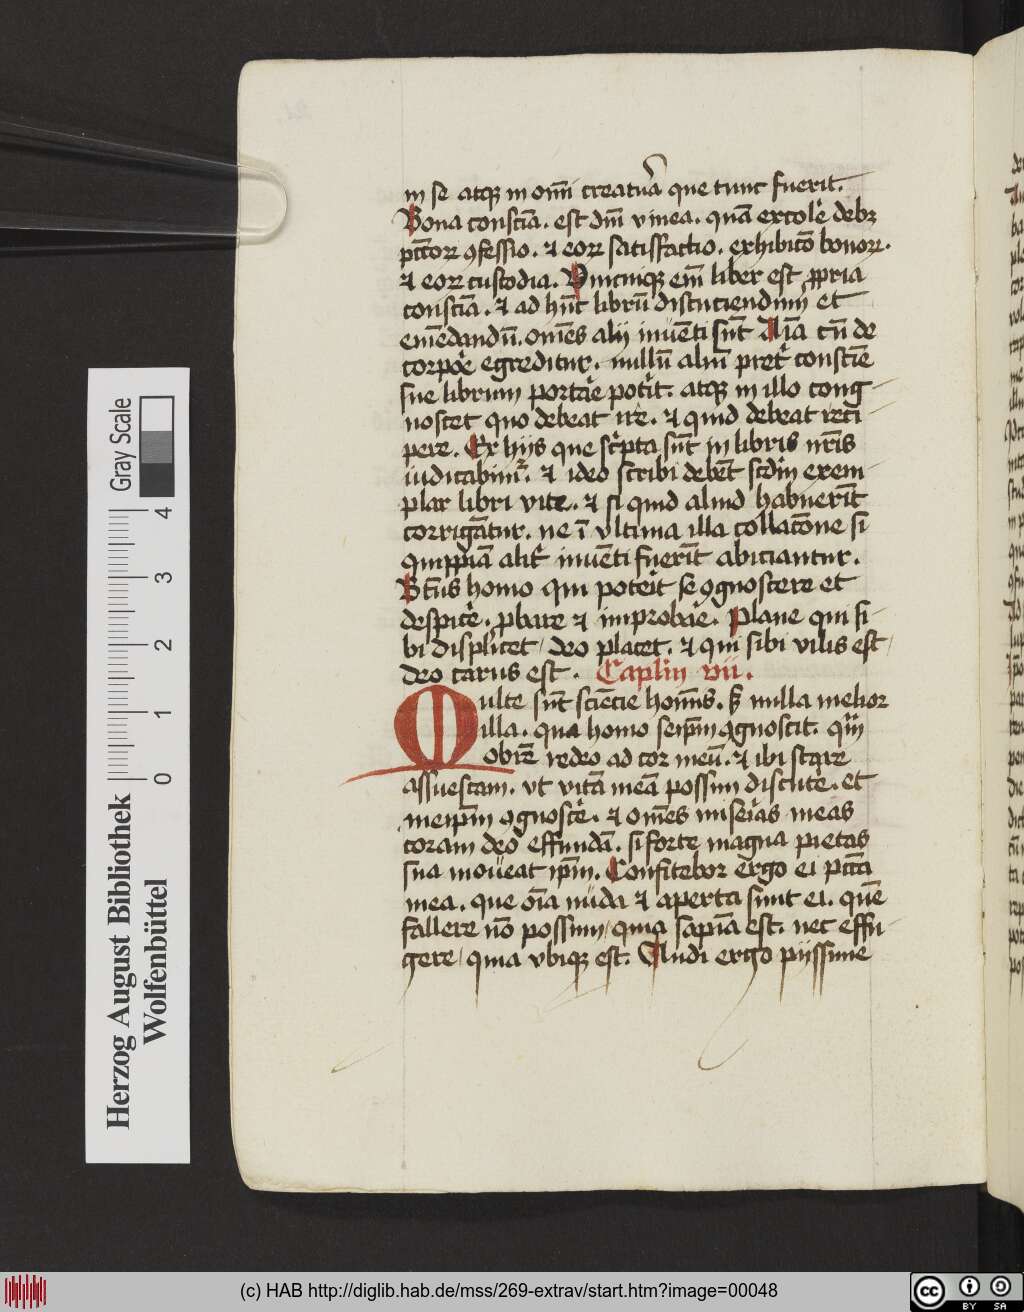 in se atqꝫ in om̄i creatᷓa que tunc fuerit.
Bona conscīa. est dn̄i vinea. quā excolē debꝫ
pcc̄oꝝ ꝯfessio. ⁊ eoꝝ satisfactio. exhibic̄o bonoꝝ.
⁊ eoꝝ custodia. Vnicuiqꝫ em̄ liber est ꝓpria
conscīa. ⁊ ad hūc librū discuciendum et
emēdandū. omēs alij inuēti sūt Aīa cū de
corpor̄e egreditur. nullū aliū pret̄ consciē
sue librum portar̄e potīt. atqꝫ in illo cong
noscet quo debeat ire. ⁊ quid debeat reci
pere. Ex hijs que sc̄pta sūt in libris nr̄is
iudicabimr̄. ⁊ ideo scribi debēt scd̄m exem
plar libri vite. ⁊ si quid aliud habuerīt
corrigātur. ne ī vltima illa collac̄one si
quippiā alit̄ inuēti fuerīt abiciantur.
Bt̄us homo qui poterit se ꝯgnoscere et
despicē. ꝓbare ⁊ improbar̄e. Plane qui si
bi displicet / deo placet. ⁊ qui sibi vilis est /
deo carus est. Caplm vii.
Multe sūt sciēcie homīs. sꝫ nulla melior
illa. qua homo seip̄m ꝯgnoscit. qm̄
obrē redeo ad cor meū. ⁊ ibi stare
assuescam. vt vitā meā possim discutē. et
meip̄m ꝯgnoscē. ⁊ omēs miserias meas
coram deo effundā. si forte magna pietas
sua moueat ip̄m. Confitebor ergo ei pcc̄a
mea. que oīa nuda ⁊ aperta sunt ei. quē
fallere nō possum / quia sapiā est. nec effu
gere / quia vbiqꝫ est. Audi ergo pijssime
Herzog August Bibliothek
Wolfenbüttel
Gray Scale
0 1 2 3 4
(c) HAB http://diglib.hab.de/mss/269-extrav/start.htm?image=00048
cc BY SA